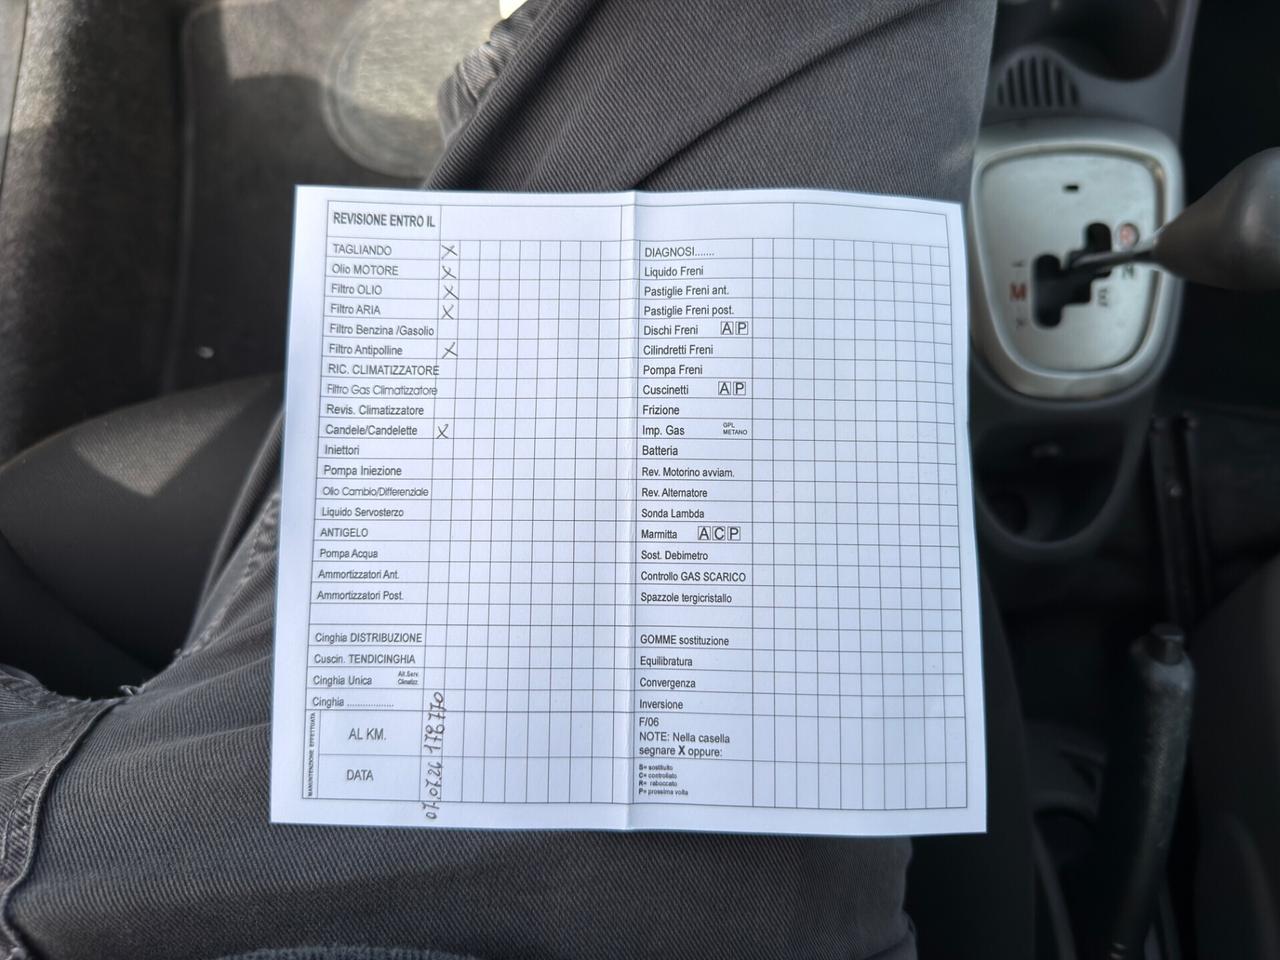 REVISIONE ENTRO IL
TAGLIANDO X
Olio MOTORE X
Filtro OLIO X
Filtro ARIA X
Filtro Benzina /Gasolio
Filtro Antipolline X
RIC. CLIMATIZZATORE
Filtro Gas Climatizzatore
Revis. Climatizzatore
Candele/Candelette X
Iniettori
Pompa Iniezione
Olio Cambio/Differenziale
Liquido Servosterzo
ANTIGELO
Pompa Acqua
Ammortizzatori Ant.
Ammortizzatori Post.
Cinghia DISTRIBUZIONE
Cuscin. TENDICINGHIA
Cinghia Unica Alt.Serv. Climatizz.
Cinghia ..................
MANUNTENZIONE EFFETTUATA
AL KM. 178770
DATA 07.07.26
DIAGNOSI.......
Liquido Freni
Pastiglie Freni ant.
Pastiglie Freni post.
Dischi Freni A P
Cilindretti Freni
Pompa Freni
Cuscinetti A P
Frizione
Imp. Gas GPL METANO
Batteria
Rev. Motorino avviam.
Rev. Alternatore
Sonda Lambda
Marmitta A C P
Sost. Debimetro
Controllo GAS SCARICO
Spazzole tergicristallo
GOMME sostituzione
Equilibratura
Convergenza
Inversione
F/06
NOTE: Nella casella
segnare X oppure:
S= sostituito
C= controllato
R= raboccato
P= prossima volta
M
N
R